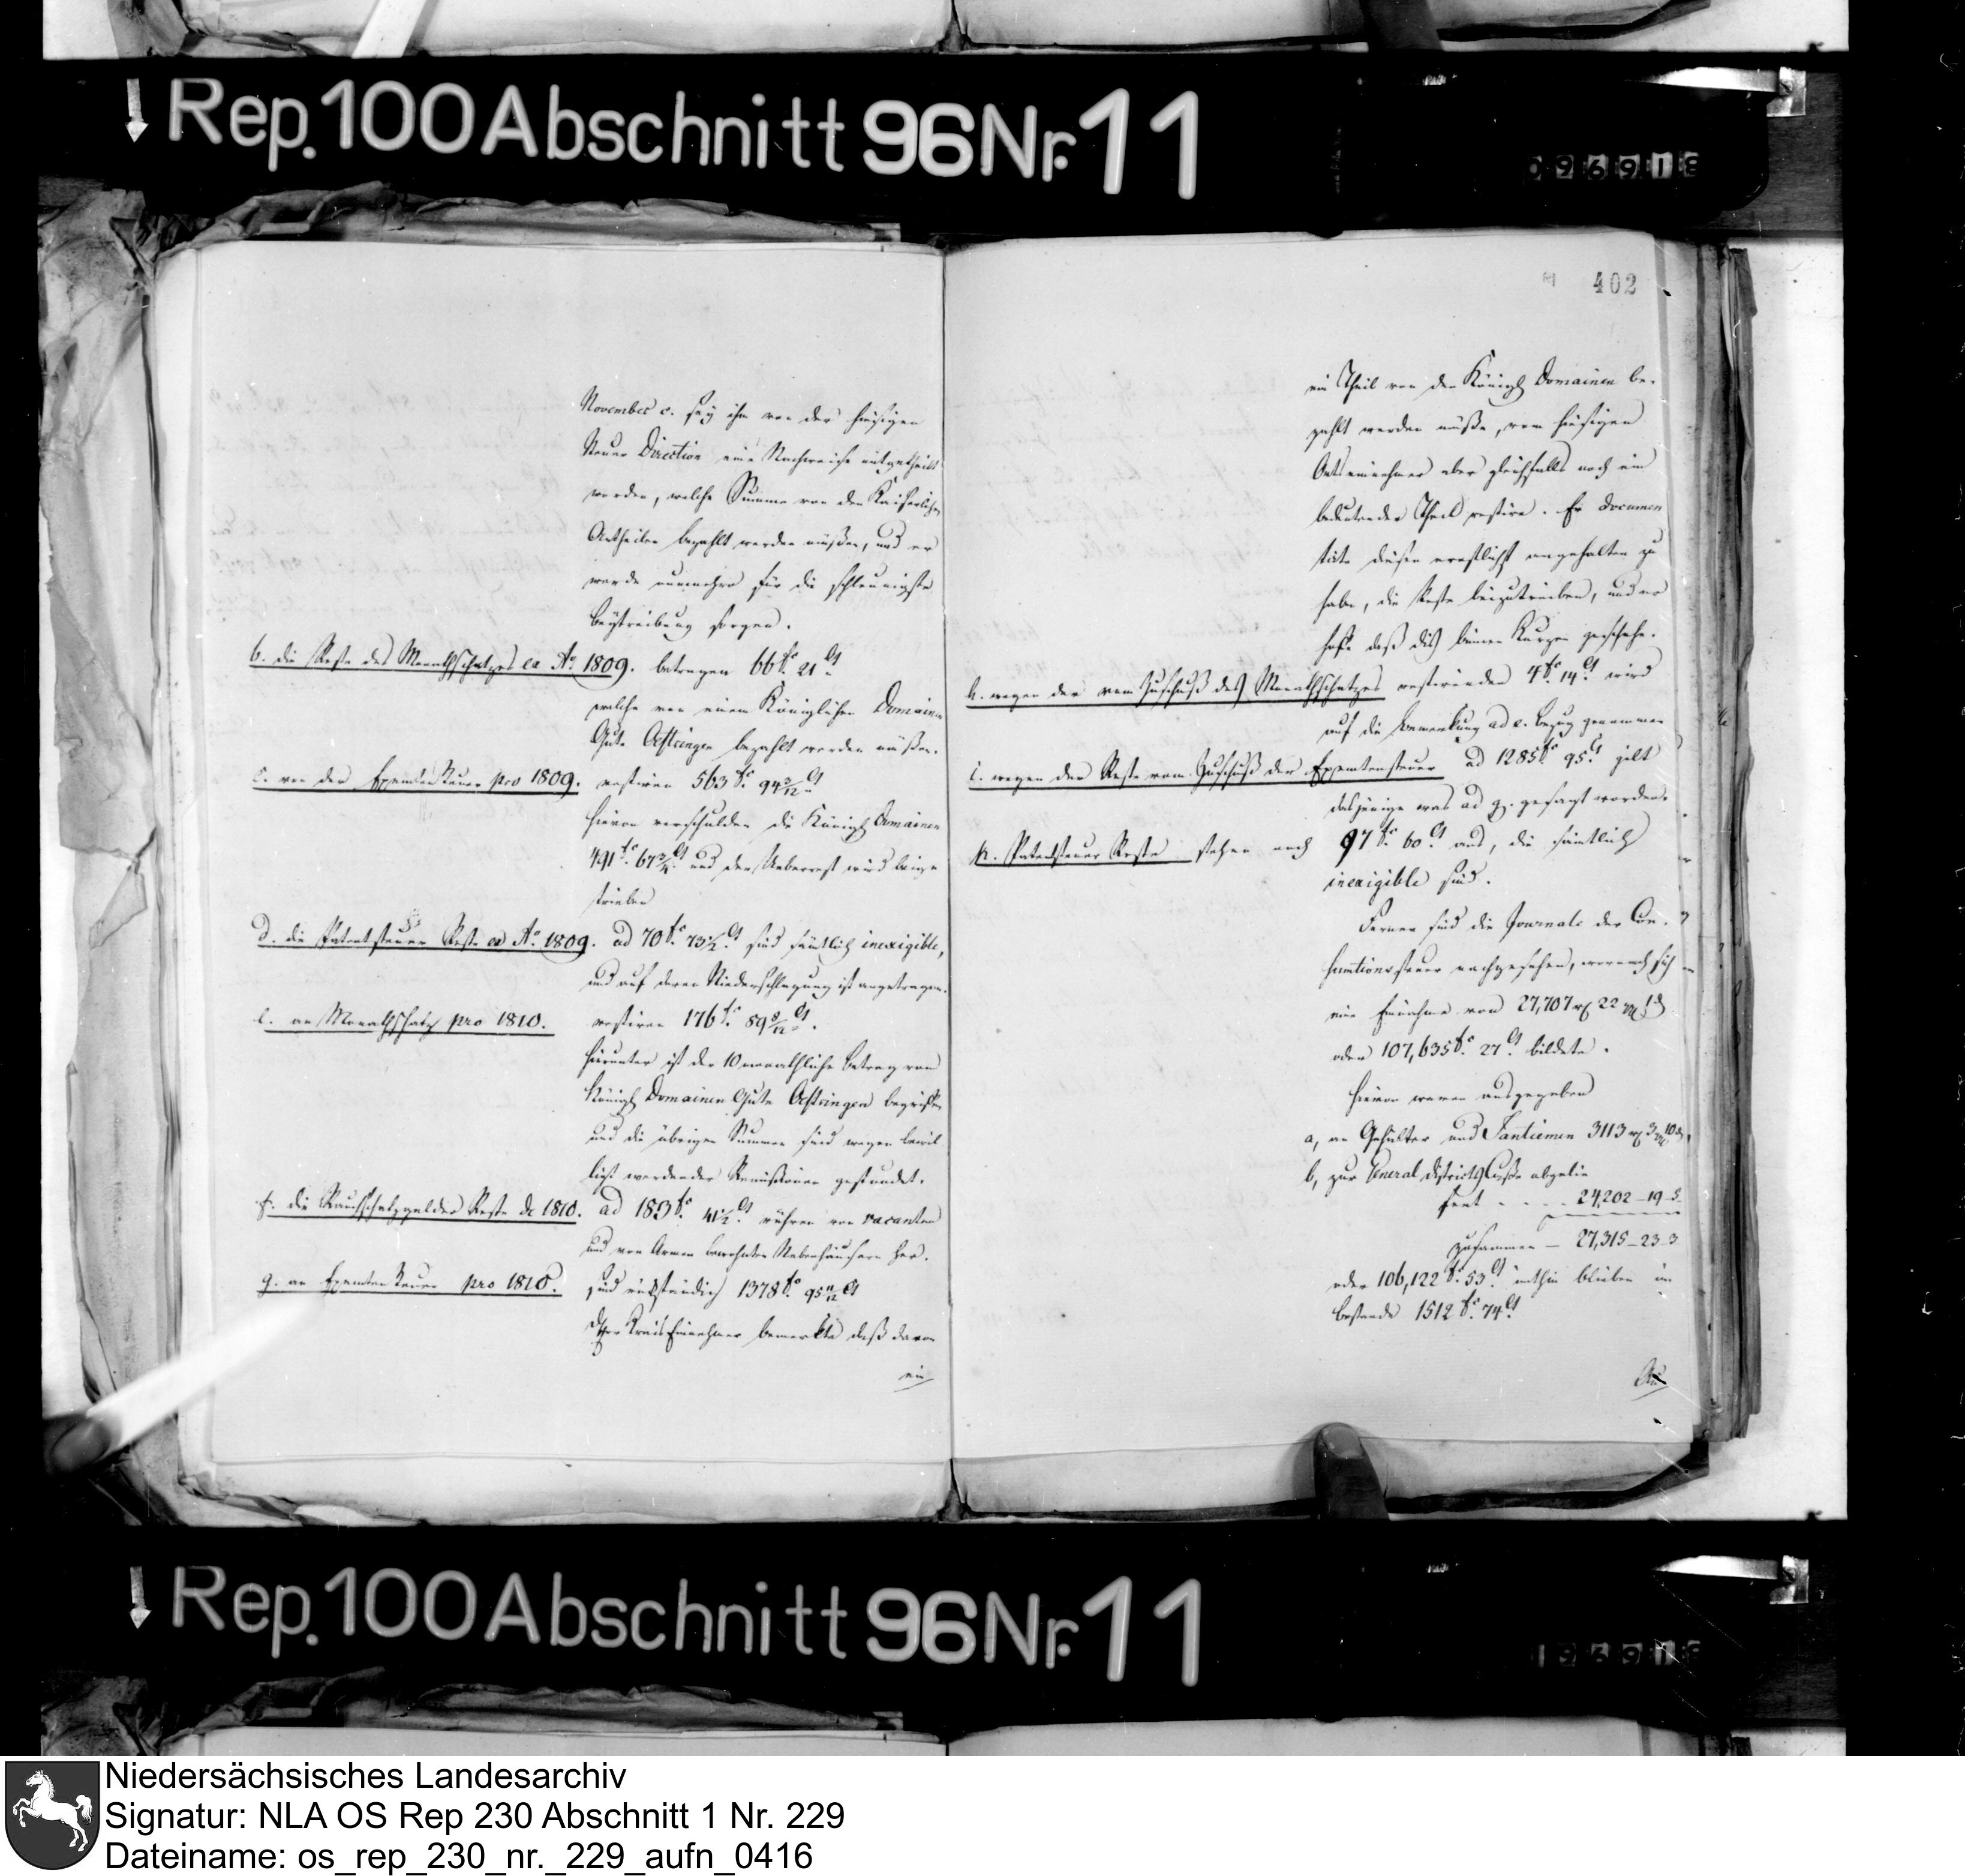 Rep. 100 Abschnitt 96 Nr. 11
November c. sey ihm von der hiesigen
Steuer Direction eine Nachweise mitgetheilt
worden, welche Summe von den Kaiserlichen
Antheilen bezahlt werden müßen, und er
werde nunmehro für die schleunigste
Beytreibung sorgen.
b. die Reste des Monathschatzes ex Ao. 1809. betragen 66 fr. 21 Ct
welche von einem Königlichen Domainen
Gute Oestringen bezahlt werden müßen.
c. von der Exemten Steuer pro 1809. restiren 563 fr. 94 3/12 Ct
hievon verschulden die Königl Domainen
491 fr. 67 3/4 Ct und der Ueberrest wird beige
trieben
d. die Patentsteuer Reste ex Ao. 1809. ad 70 fr. 73 1/2 Ct sind sämtlich inexigible,
und auf deren Niederschlagung ist angetragen.
e. an Monathschatz pro 1810. restiren 176 fr. 89 8/12 Ct.
hierunter ist der 10 monathliche Betrag vom
Königl Domainen Gute Oestringen begriffen
und die übrigen Summen sind wegen bewil
ligt werdender Remissionen gestundet.
f. die Rauchschatzgelder Reste de 1810. ad 183 fr. 41 1/2 Ct rühren von vacanten
und von Armen bewohnten Nebenhäusern her.
g. an Exemten Steuer pro 1810. sind rükständig 1378 fr. 95 11/12 Ct
Der Kreis Einnehmer bemerkte daß davon
ein
402
ein Theil von den Königl Domainen be-
zahlt werden müße, vom hiesigen
Ortseinnehmer aber gleichfalls noch ein
bedeutender Theil restire. Er documen
tirte diesen ernstlichst angehalten zu
haben, die Reste beizutreiben, und er
hoffe daß dies binnen Kurzen geschehe.
h. wegen der vom Zuschuß des Monathschatzes restirenden 4 fr. 14 Ct wird
auf die Bemerkung ad e. bezug genommen
i. wegen der Reste vom Zuschuß der Exemtensteuer ad 1285 fr. 95 Ct gilt
dasjenige was ad g. gesagt worden.
k. Patentsteuer Reste stehen noch 97 fr. 60 Ct aus, die sämtlich
inexigible sind.
Ferner sind die Journale der Con-
sumtionssteuer nachgesehen, wornach sich
eine Einnahme von 27,707 rt 22 1 d
oder 107,635 fr. 27 Ct bildete.
hievon waren ausgegeben
a, an Gehälter und Tantiemen 3113 rt 3 10 d,
b, zur General Districts Casse abgelie
fert - - - - 24,202 - 19 - 5
zusammen - 27,315 - 23 3
oder 106,122 fr. 53 Ct mithin blieben im
Bestande 1512 fr. 74 Ct
Rep. 100 Abschnitt 96 Nr. 11
Niedersächsisches Landesarchiv
Signatur: NLA OS Rep 230 Abschnitt 1 Nr. 229
Dateiname: os_rep_230_nr._229_aufn_0416